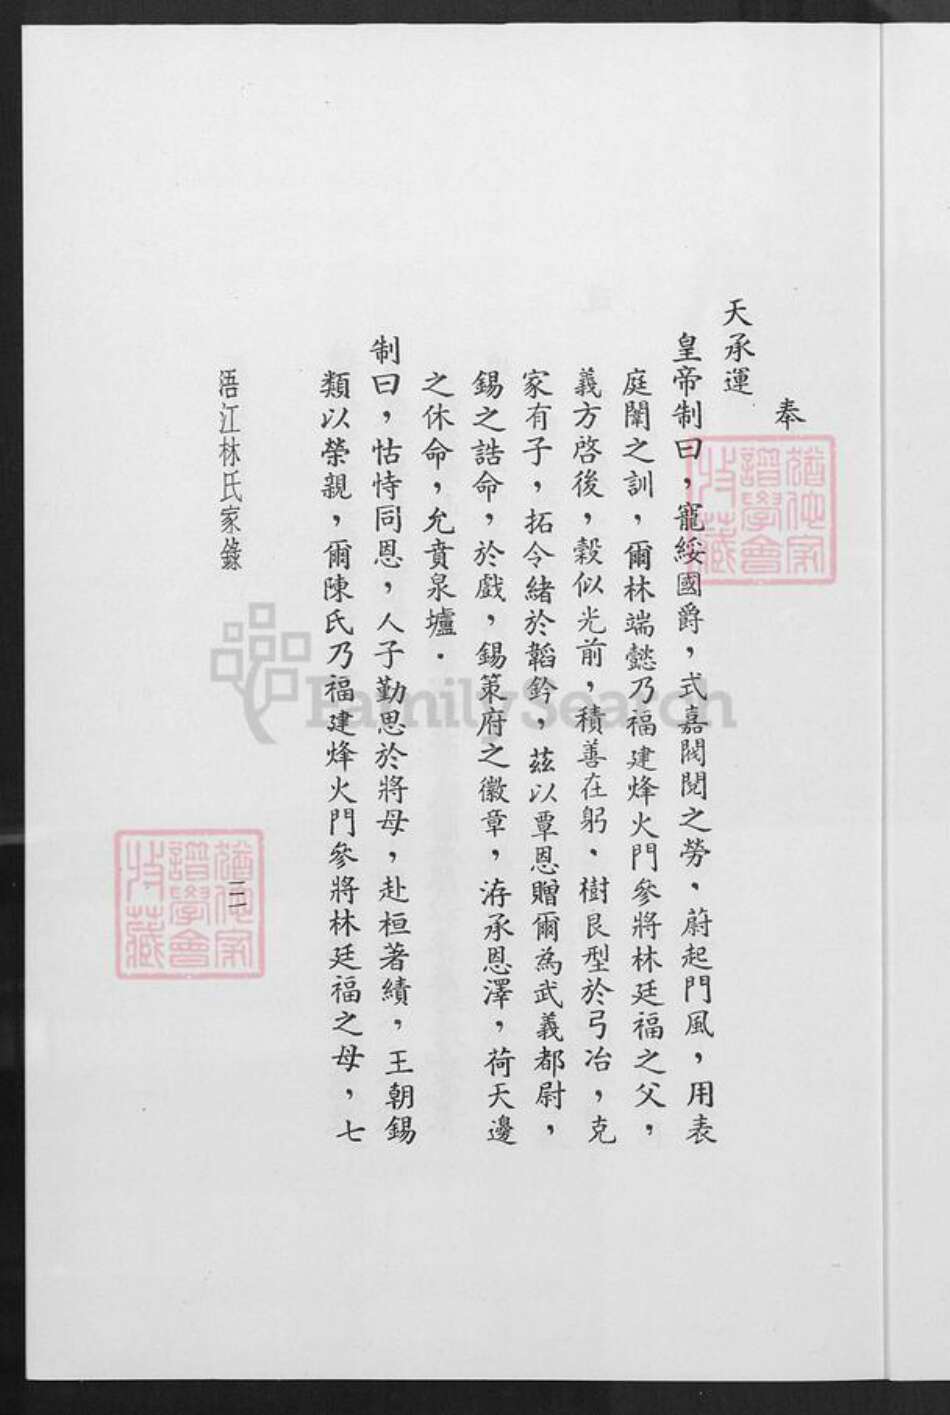 奉
天承運
皇帝制曰，寵綏國爵，式嘉閥閱之勞，蔚起門風，用表
庭闈之訓，爾林端懿乃福建烽火門參將林廷福之父，
義方啓後，穀似光前，積善在躬，樹良型於弓冶，克
家有子，拓令緒於韜鈐，茲以覃恩贈爾為武義都尉，
錫之誥命，於戲，錫策府之徽章，洊承恩澤，荷天邊
之休命，允賁泉壚．
制曰，怙恃同恩，人子勤思於將母，赴桓著績，王朝錫
類以榮親，爾陳氏乃福建烽火門參將林廷福之母，七
浯江林氏家錄
三
猶他家
譜學會
收藏
猶他家
譜學會
收藏
FamilySearch